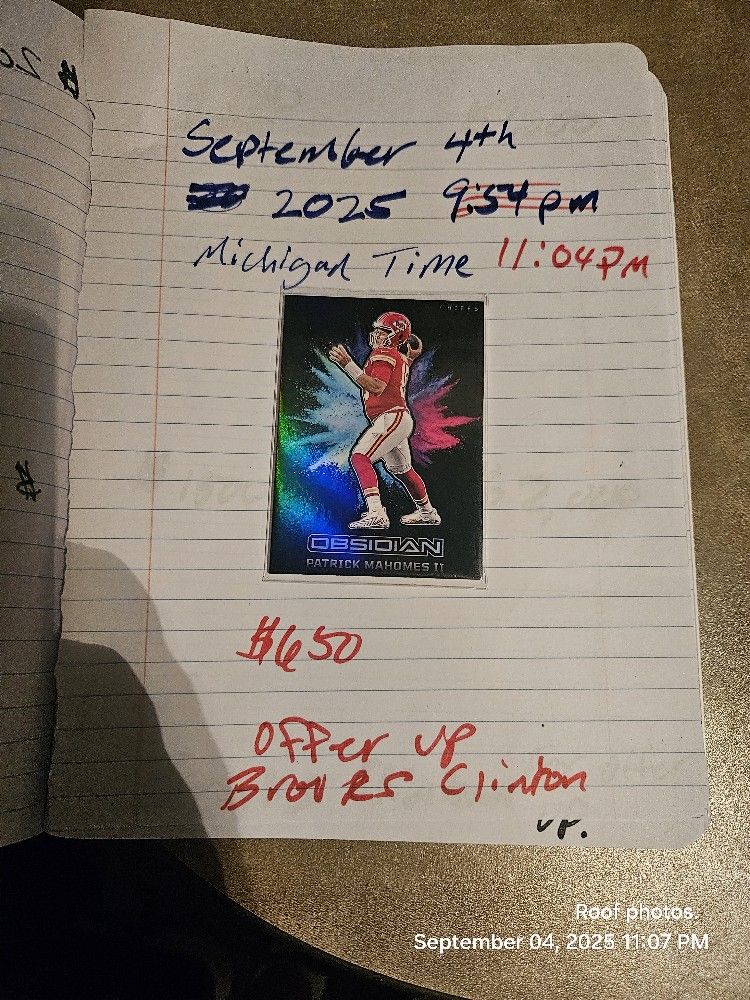 September 4th
2025 9:54pm
Michigan Time 11:04PM
CHIEFS
OBSIDIAN
PATRICK MAHOMES II
$650
Offer up
Brooks Clinton
Roof photos.
September 04, 2025 11:07 PM